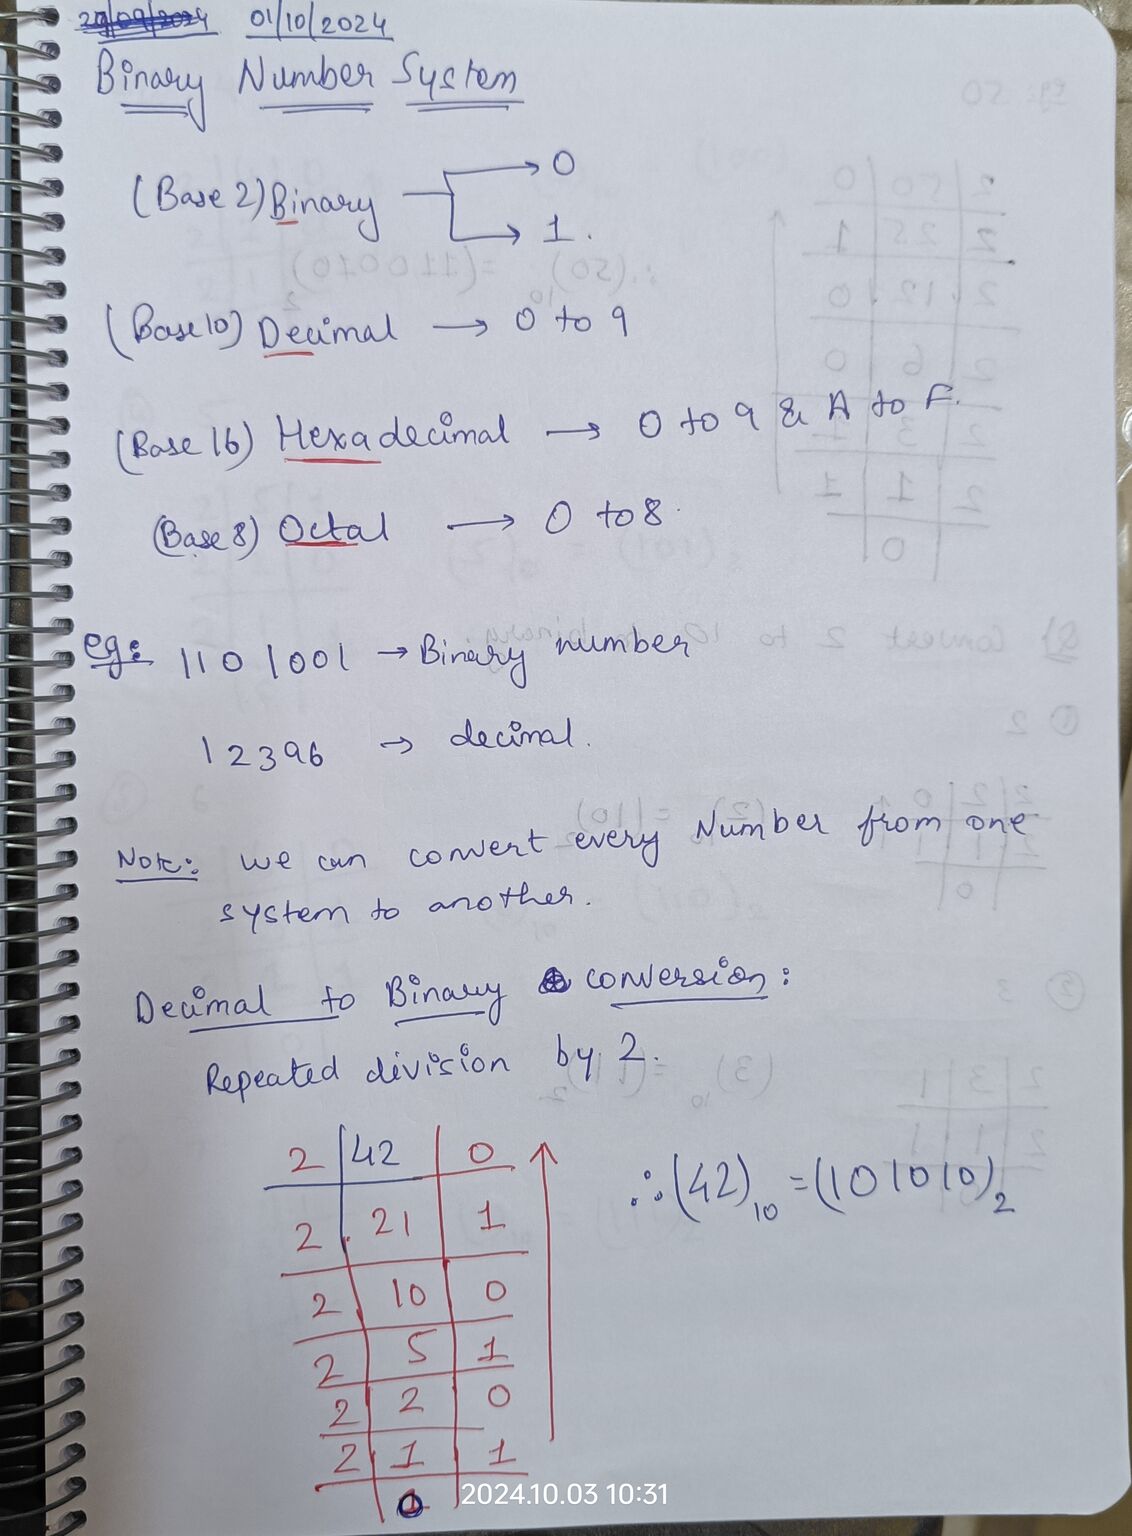 01/10/2024
Binary Number System
(Base 2) Binary → 0
→ 1.
(Base 10) Decimal → 0 to 9
(Base 16) Hexadecimal → 0 to 9 & A to F.
(Base 8) Octal → 0 to 8.
eg: 1101001 → Binary number
12396 → decimal.
Note: we can convert every Number from one
system to another.
Decimal to Binary conversion:
Repeated division by 2:
2 | 42 | 0
2 | 21 | 1
2 | 10 | 0
2 | 5 | 1
2 | 2 | 0
2 | 1 | 1
0
∴ (42)₁₀ = (101010)₂
2024.10.03 10:31